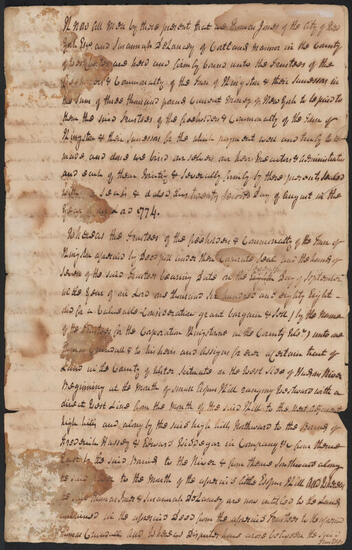 Know all men by these present that we Thomas Jones of the City of New
York Esqr and Susannah DeLancey of Cortland manor in the County
of are held and firmly bound unto the Trustees of the
& Commonalty of the Town of Kingston & their Successors in
the sum of three thousand pounds Current Money of New York to be paid to
them the said Trustees of the freeholders & Commonalty of the Town of
Kingston & their Successors for the which payment well and truly to be
made, and done we bind our selves our Heirs Executors & Administrators
and each of them Jointly & Severally firmly by these presents Sealed
with Seals & dated this twenty day of August in the
Year 1774.
Whereas the Trustees of the freeholders & Commonalty of the Town of
Kingston aforesaid by Deed poll under their Corporate Seal and the hands of
Seven of the said Trustees bearing Date on the Day of September
in the Year of our Lord one thousand Six hundred and eighty Eight
did for a Valuable Consideration grant bargain & Sell by the name
of the Trustees for the Corporation Kingstown in the County unto
to his heirs and assigns for ever a Certain Tract of
Land in the County of Ulster Scituate on the West Side of Hudsons River
Beginning at the Mouth of small Esopus Kill and going Westward with a
direct West Line from the Mouth of the said Kill to the next
high hills and along by the said high hill Northward to the Bounds of
Frederick Hussey & Edward Whittaker in Company & from thence
by the said Bounds to the River & from thence Southward along
said River to the Mouth of the aforesaid little Esopus Kill And Whereas
the said Thomas Jones & Susannah DeLancey are now intitled to the Lands
contained in the aforesaid Deed from the aforesaid Trustees to the aforesaid
and Whereas Disputes have arose between the said
Trustees